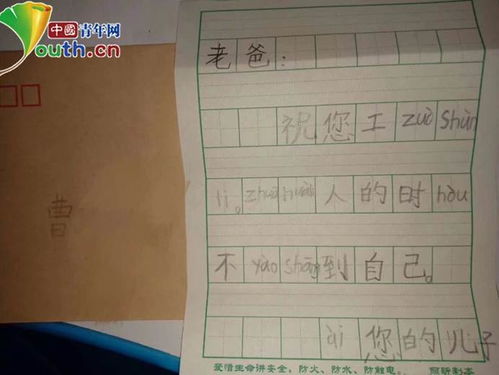 中國青年网
Youth.cn
曹
老爸：
祝您工zuò shùn
lì。zhuā huài人的时hòu
不yào shāng到自己。
ài您的儿子
爱惜生命讲安全，防火、防水、防触电。